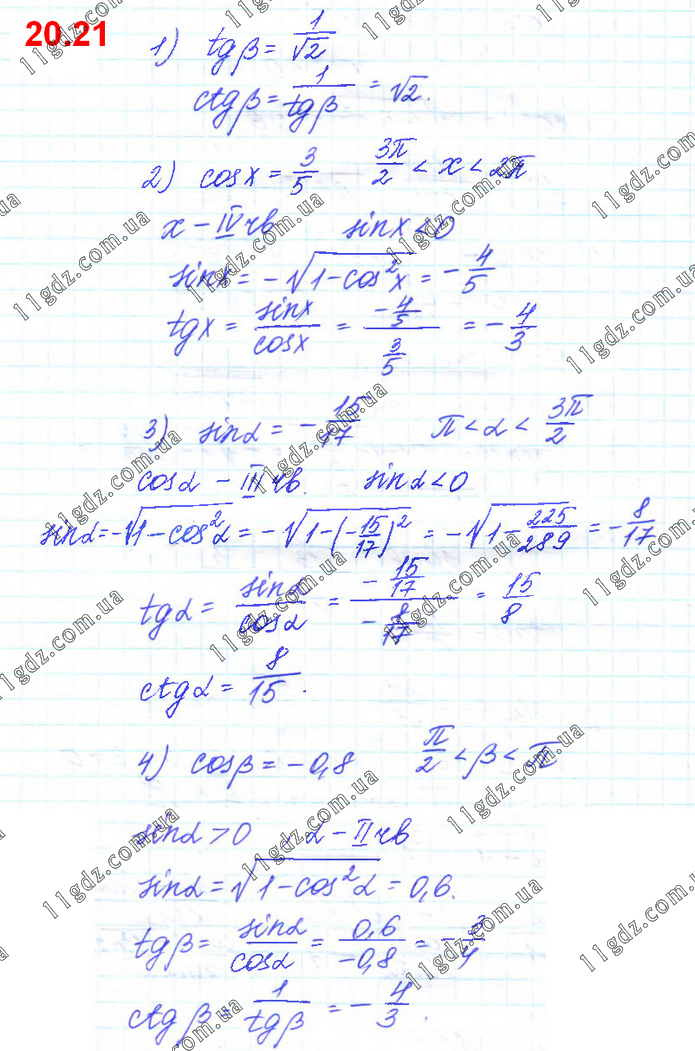 20.21
1) tgβ = 1/√2
ctgβ = 1/tgβ = √2.
2) cosx = 3/5 3π/2 < x < 2π
x – IV чв sinx < 0
sinx = -√(1-cos²x) = -4/5
tgx = sinx/cosx = (-4/5)/(3/5) = -4/3
3) sinα = -15/17 π < α < 3π/2
cosα – III чв. sinα < 0
sinα = -√(1-cos²α) = -√(1-(-15/17)²) = -√(1-225/289) = -8/17
tgα = sinα/cosα = (-15/17)/(-8/17) = 15/8
ctgα = 8/15.
4) cosβ = -0,8 π/2 < β < π
sinα > 0 α – II чв
sinα = √(1-cos²α) = 0,6.
tgβ = sinα/cosα = 0,6/-0,8 = -3/4
ctgβ = 1/tgβ = -4/3.
11gdz.com.ua